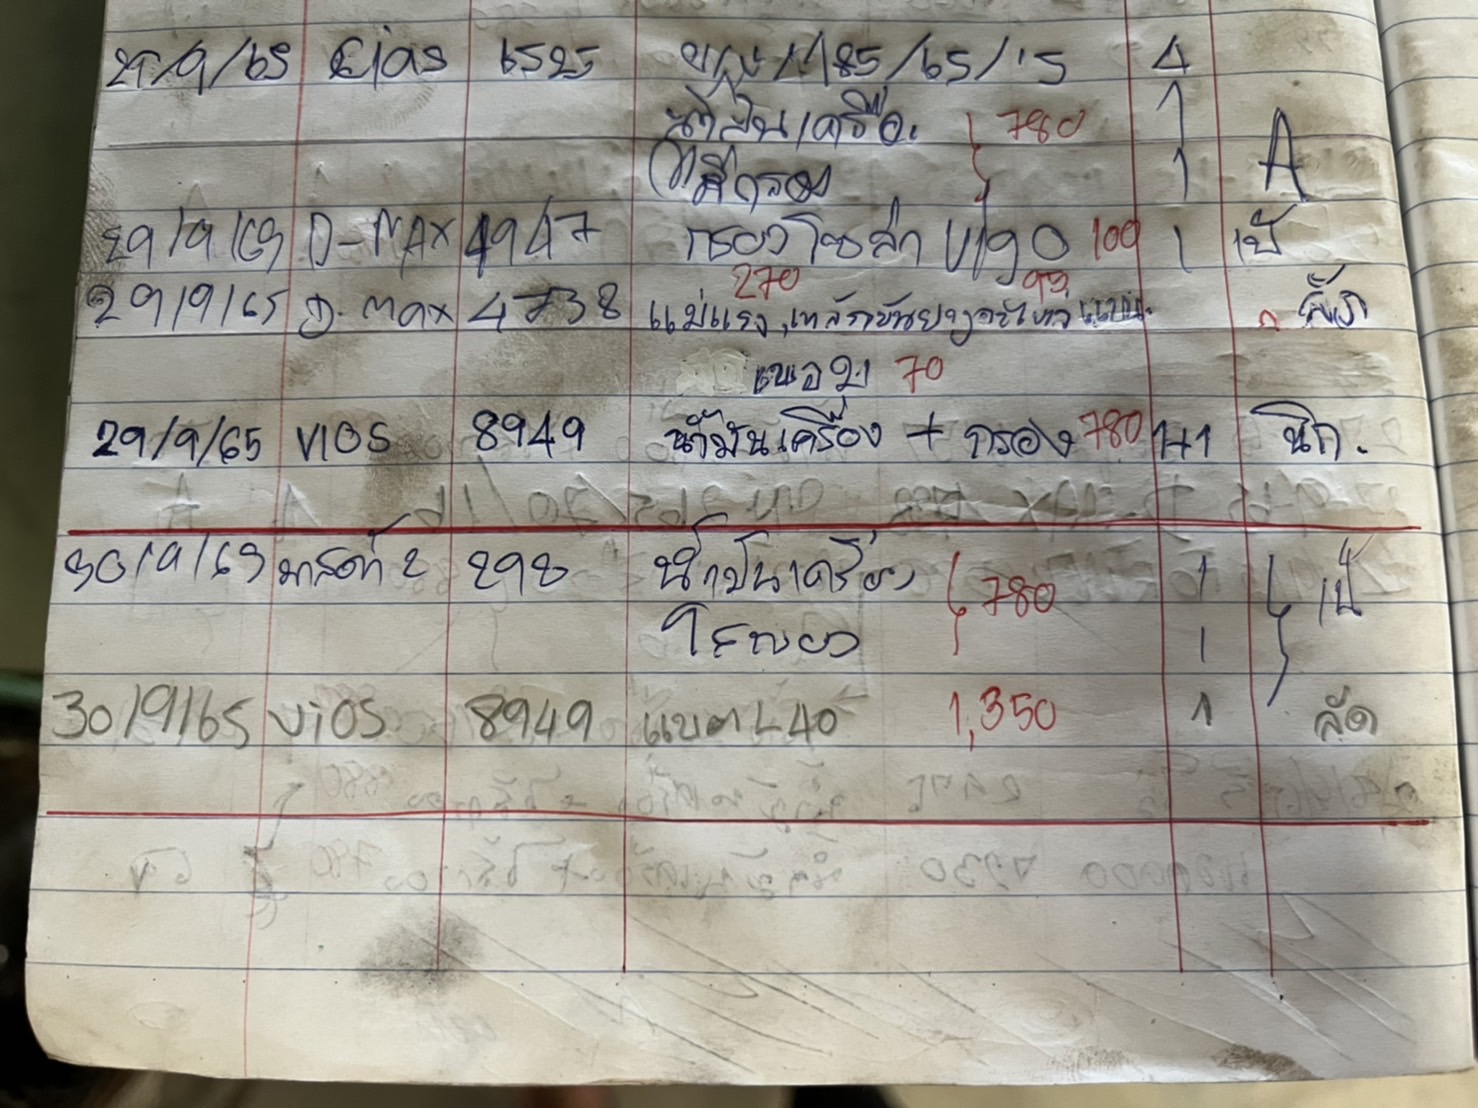 29/9/65 Cias 6525 ยาง 185/65/15 4
น้ำมันเครื่อง 780 1
ไส้กรอง 1 A
29/9/65 D-MAX 4947 กรองโซล่า Vigo 100 1 เป้
270 95
29/9/65 D-max 4738 แม่แรง, เหล็กขันยางอะไหล่
70
29/9/65 VIOS 8949 น้ำมันเครื่อง + กรอง 780 1+1 นิก.
30/9/65 มาสด้า 2 298 น้ำมันเครื่อง 780 1 เป้
ไส้กรอง 1
30/9/65 ViOS 8949 แบต L40 1,350 1 ลัด